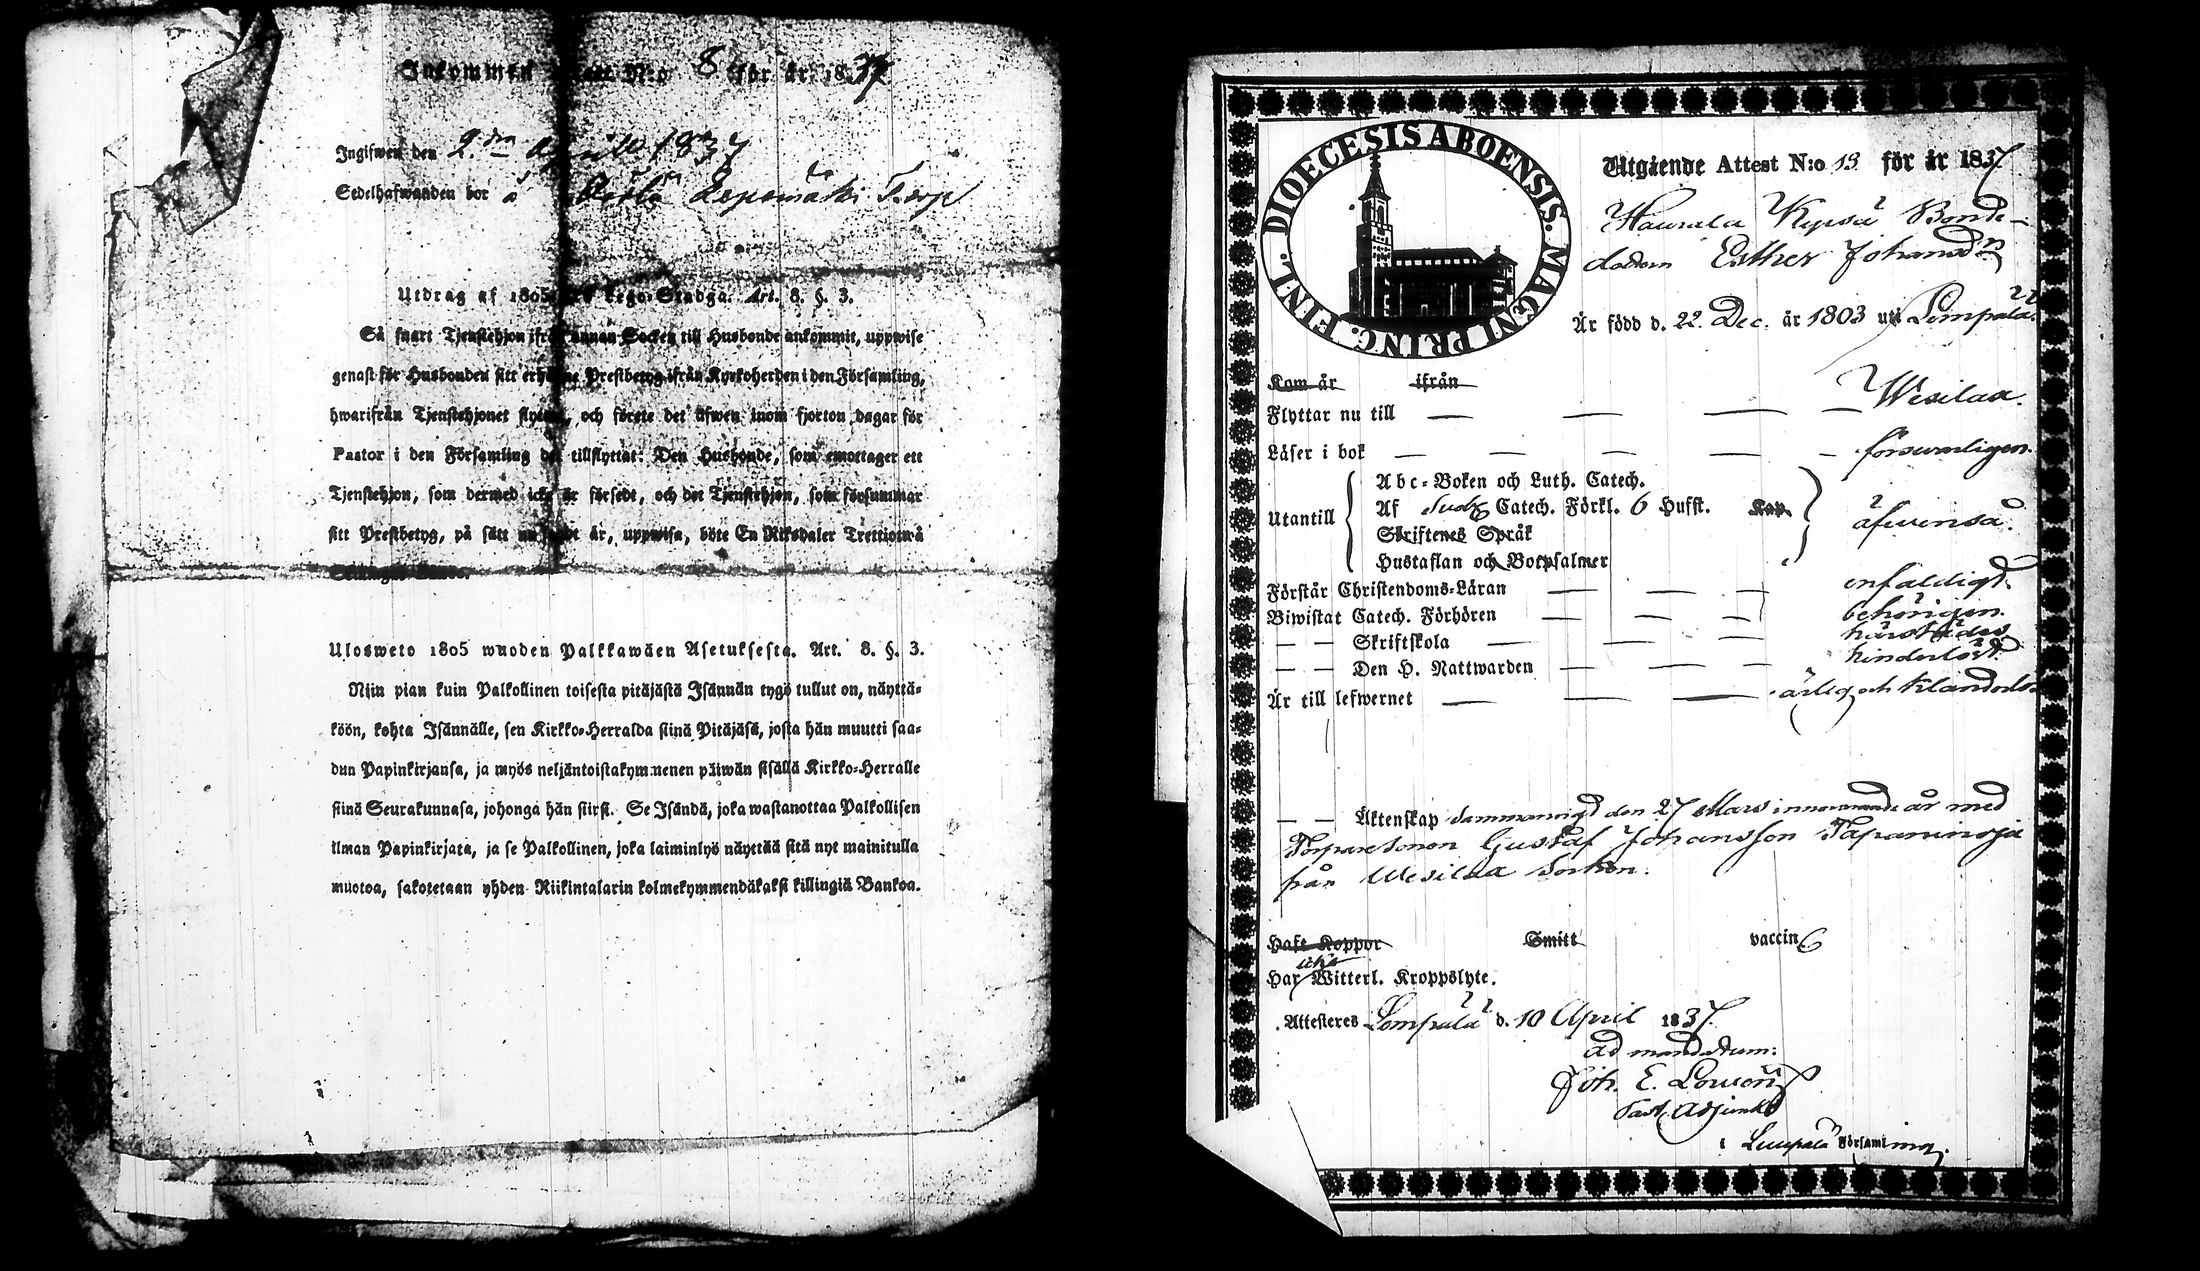 Inkommen Attest N:o 8 för år 1837
Ingifwen den 2:dra Aprill 1837
Sedelhafwanden bor å Torp
Utdrag af 1805 Lego-Stadga. Art. 8. §. 3.
Så snart Tjenstehjon ifrån annan Socken till Husbonde ankommit, uppwise
genast för Husbonden sitt erhållne Prestbetyg ifrån Kyrkoherden i den Församling,
hwarifrån Tjenstehjonet flyttat, och förete det äfwen inom fjorton dagar för
Pastor i den Församling det tillflyttat: Den Husbonde, som emottager ett
Tjenstehjon, som dermed icke är försedt, och det Tjenstehjon, som försummar
sitt Prestbetyg, på sätt nu sagdt är, uppwisa, böte En Riksdaler Trettiotwå
Skillingar Banco.
Ulosweto 1805 wuoden Palkkawäen Asetuksesta. Art. 8. §. 3.
Niin pian kuin Palkollinen toisesta pitäjästä Isännän tygö tullut on, näyttä-
köön, kohta Isännälle, sen Kirkko-Herralda siinä Pitäjäsä, josta hän muutti saa-
dun Papinkirjansa, ja myös neljäntoistakymmenen päiwän sisällä Kirkko-Herralle
siinä Seurakunnasa, johonga hän siirsi. Se Isändä, joka wastanottaa Palkollisen
ilman Papinkirjata, ja se Palkollinen, joka laiminlyö näyttää sitä nyt mainitulla
muotoa, sakotetaan yhden Riikintalarin kolmekymmendäkaksi killingiä Bankoa.
DIOECESIS ABOENSIS. MAGNI PRINC. FINL.
Utgående Attest N:o 13 för år 1837
Haurala Kyrsä Bonde-
dottren Esther Johansdr
Är född d. 22 Dec. år 1803 uti Lempälä.
Kom år ifrån
Flyttar nu till — — — — Wesilax.
Läser i bok — — — — — försvarligen.
Utantill
Abc-Boken och Luth. Catech.
Af Catech. Förkl. 6 Hufst. Kap.
Skriftenes Språk
Hustaflan och Botpsalmer
äfwenså.
Förstår Christendoms-Läran — — — enfaldigt.
Biwistat Catech. Förhören — — — behörigen.
— — Skriftskola — — — härstädes
— — Den H. Nattwarden — — — hinderlöst.
Är till lefwernet — — — ärlig och klanderlös
— — Äktenskap sammanvigd den 27 Mars innevarande år med
Torparesonen Gustaf Johansson Tapaninoja
från Wesilax Socken.
Haft Koppor Smitt vaccin
icke
Har Witterl. Kroppslyte.
Attesteres Lempälä d. 10 April 1837.
ad mandatum:
Joh. E.
Past. Adjunkt
i Lempälä Församling.